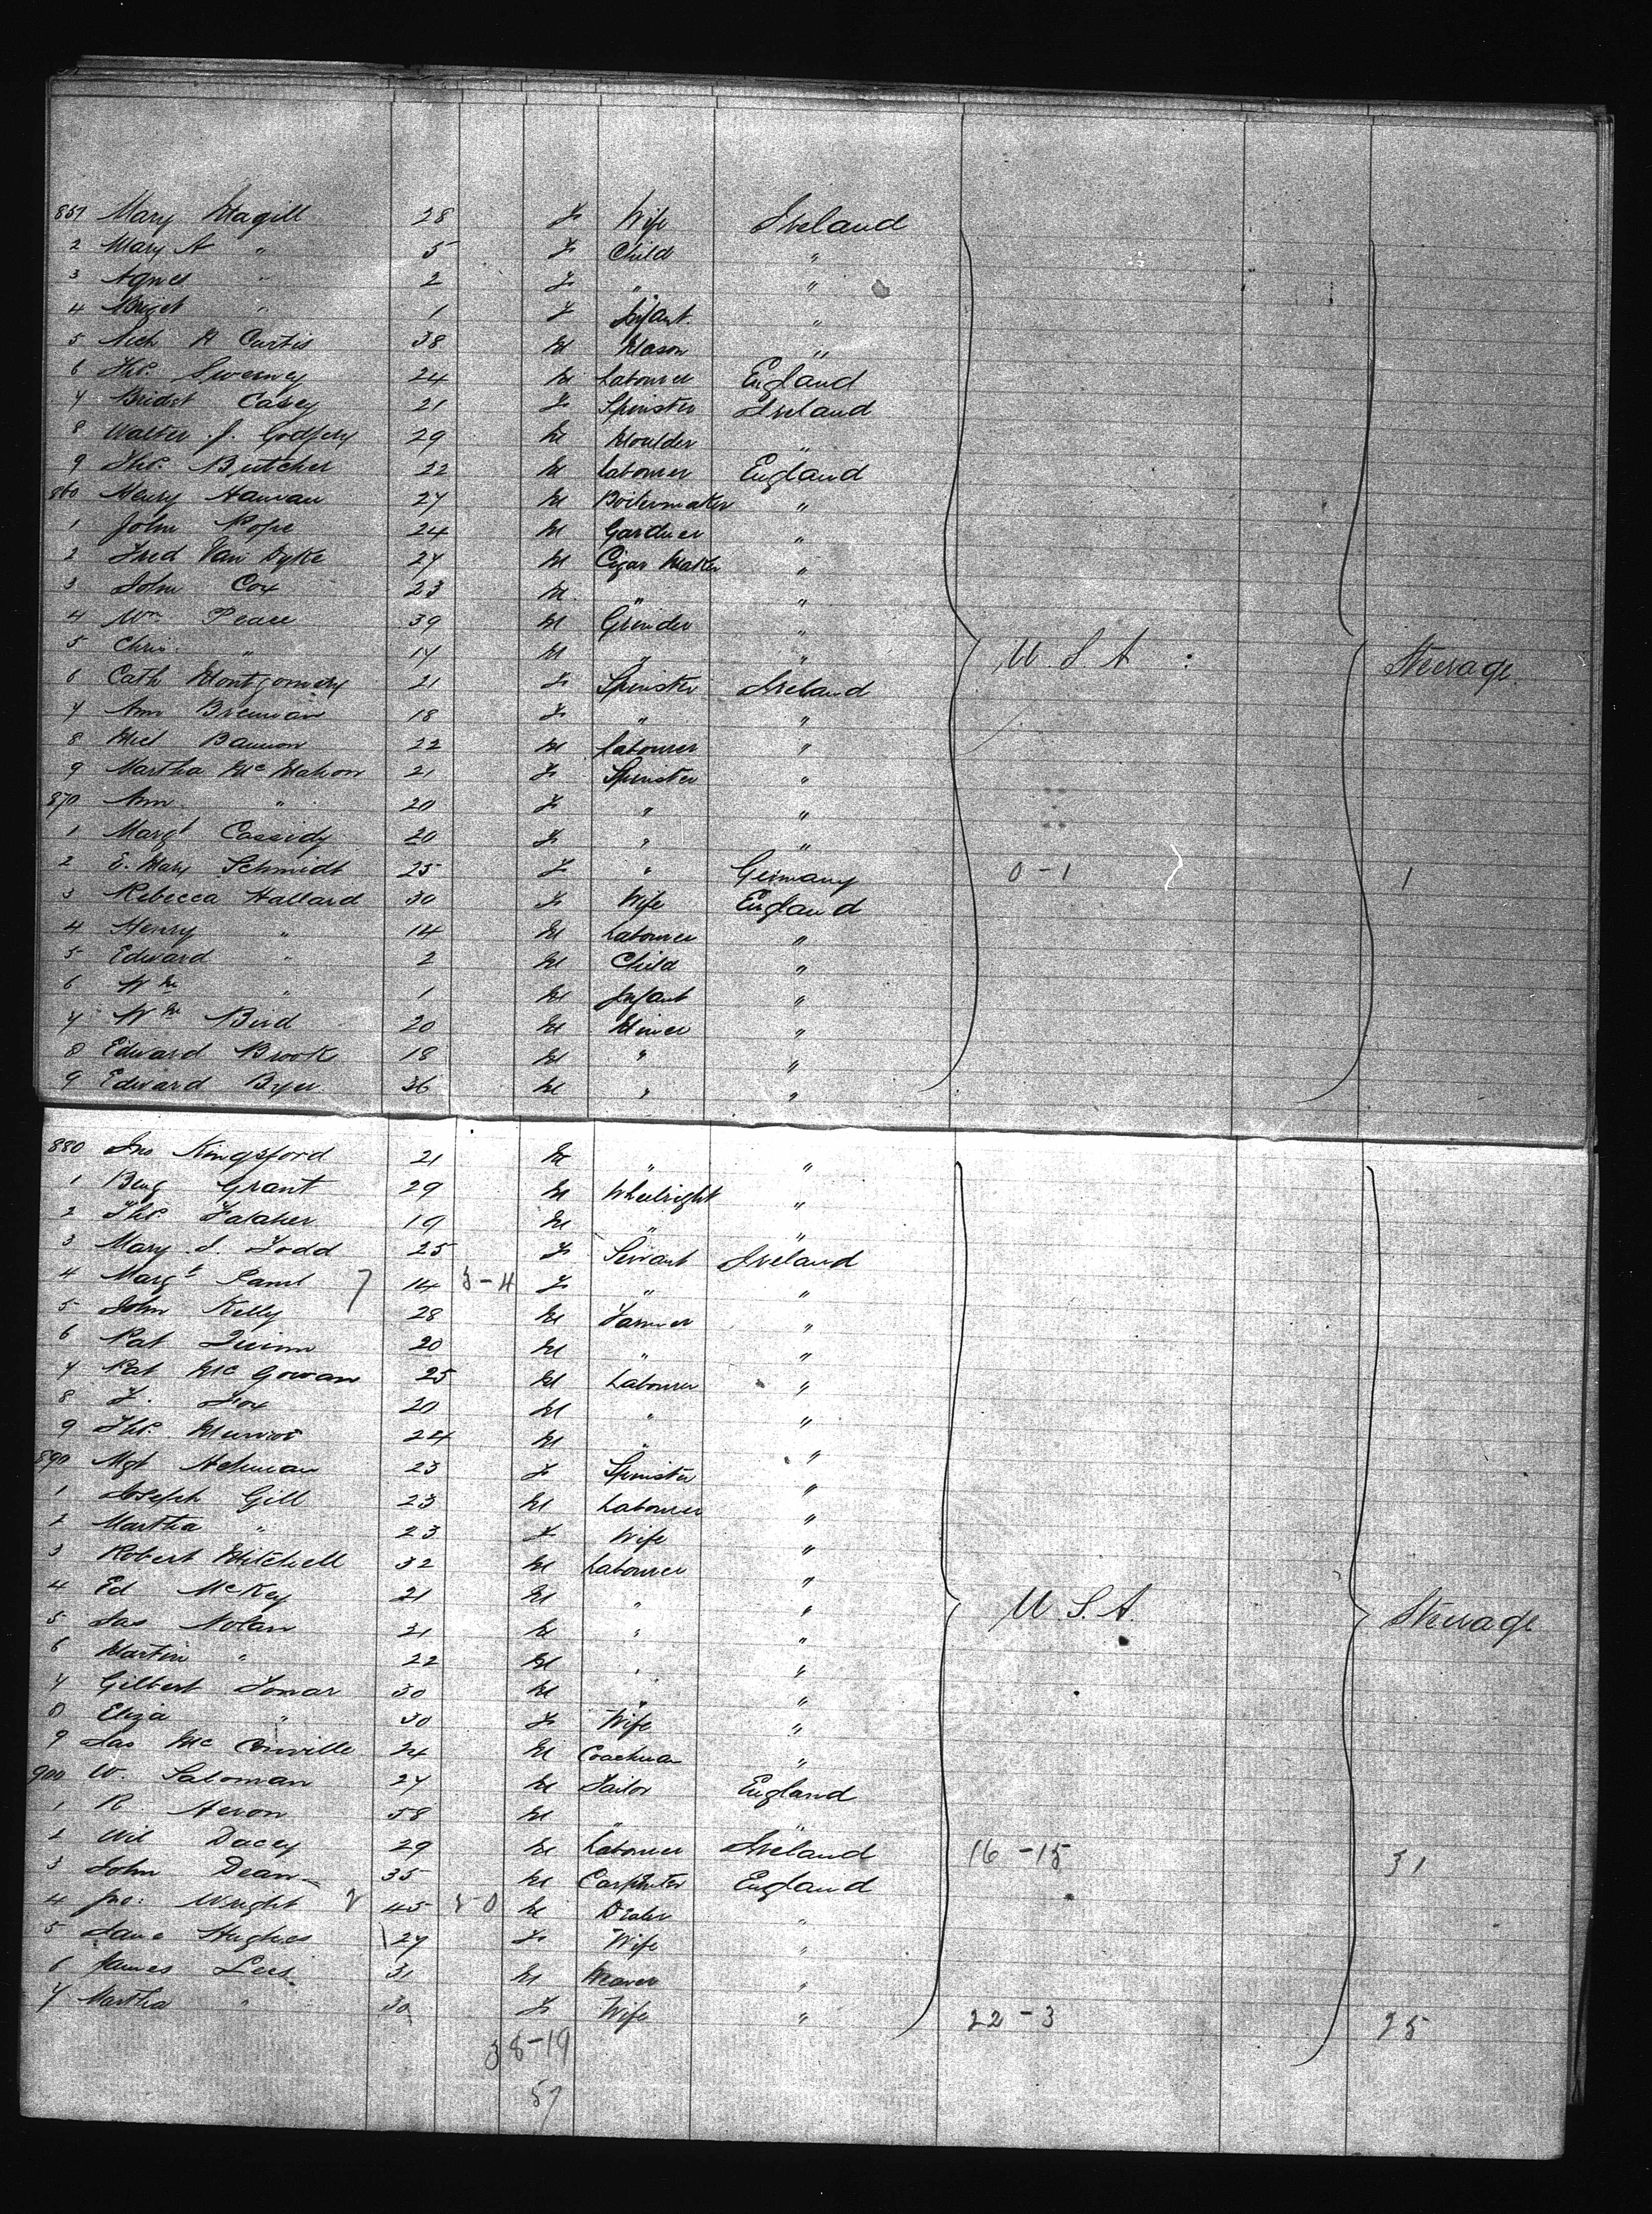 851 Mary Magill 28 F Wife Ireland
2 Mary A " 5 F Child "
3 Agnes " 2 F " "
4 Brigt " 1 F Infant. "
5 Nich H Curtis 38 M Mason "
6 Thos. Sweeney 24 M Labourer England
7 Bridgt Casey 21 F Spinster Ireland
8 Walter J. Godfrey 29 M Moulder "
9 Thos. Butcher 22 M Labourer England
860 Henry Hannan 27 M Boilermaker "
1 John Pope 24 M Gardner "
2 Fred Van Dyke 27 M Cigar Maker "
3 John Cox 23 M " "
4 Wm Pease 39 M Grinder "
5 Chris. " 17 M " " U.S.A : Steerage
6 Cath Montgomery 21 F Spinster Ireland
7 Ann Brennan 18 F " "
8 Mich Bannon 22 M Labourer "
9 Martha McMahon 21 F Spinster "
870 Ann " 20 F " "
1 Margt Cassidy 20 F " "
2 E. Mary Schmidt 25 F " Germany 0-1 1
3 Rebecca Hallard 30 F Wife England
4 Henry " 14 M Labourer "
5 Edward " 2 M Child "
6 Wm " 1 M Infant "
7 Wm Bird 20 M Miner "
8 Edward Brook 18 M " "
9 Edward Byer 36 M " "
880 Jno Kingsford 21 M " "
1 Benj Grant 29 M Wheelright "
2 Thos. 19 M " "
3 Mary J. Todd 25 F Servant Ireland
4 Margt 14 3-4 F " "
5 John Kelly 28 M Farmer "
6 Pat Quinn 20 M " "
7 Pat McGowan 25 M Labourer "
8 F. Fox 20 M " "
9 Thos. 24 M " "
890 Mgt 23 F Spinster "
1 Joseph Gill 23 M Labourer "
2 Martha " 23 F Wife "
3 Robert Mitchell 32 M Labourer "
4 Ed McKey 21 M " " U.S.A. Steerage
5 Jas Nolan 31 M " "
6 Martin " 22 M " "
7 Gilbert 30 M " "
8 Eliza " 30 F Wife "
9 Jas McConville 24 M Coachman "
900 W. Saloman 27 M Tailor England
1 R Heron 58 M " "
2 Wil Dacey 29 M Labourer Ireland 16-15 31
3 John Dean 35 M Carpenter England
4 Jno: Wright 45 M Dealer "
5 Jane Hughes 27 F Wife "
6 James Lees 31 M Weaver "
7 Martha " 30 F Wife " 22-3 25
38-19
57